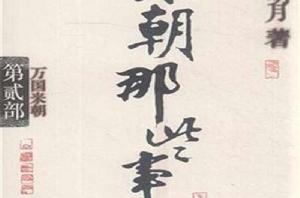 月著
朝那些事
万国来朝
第贰部